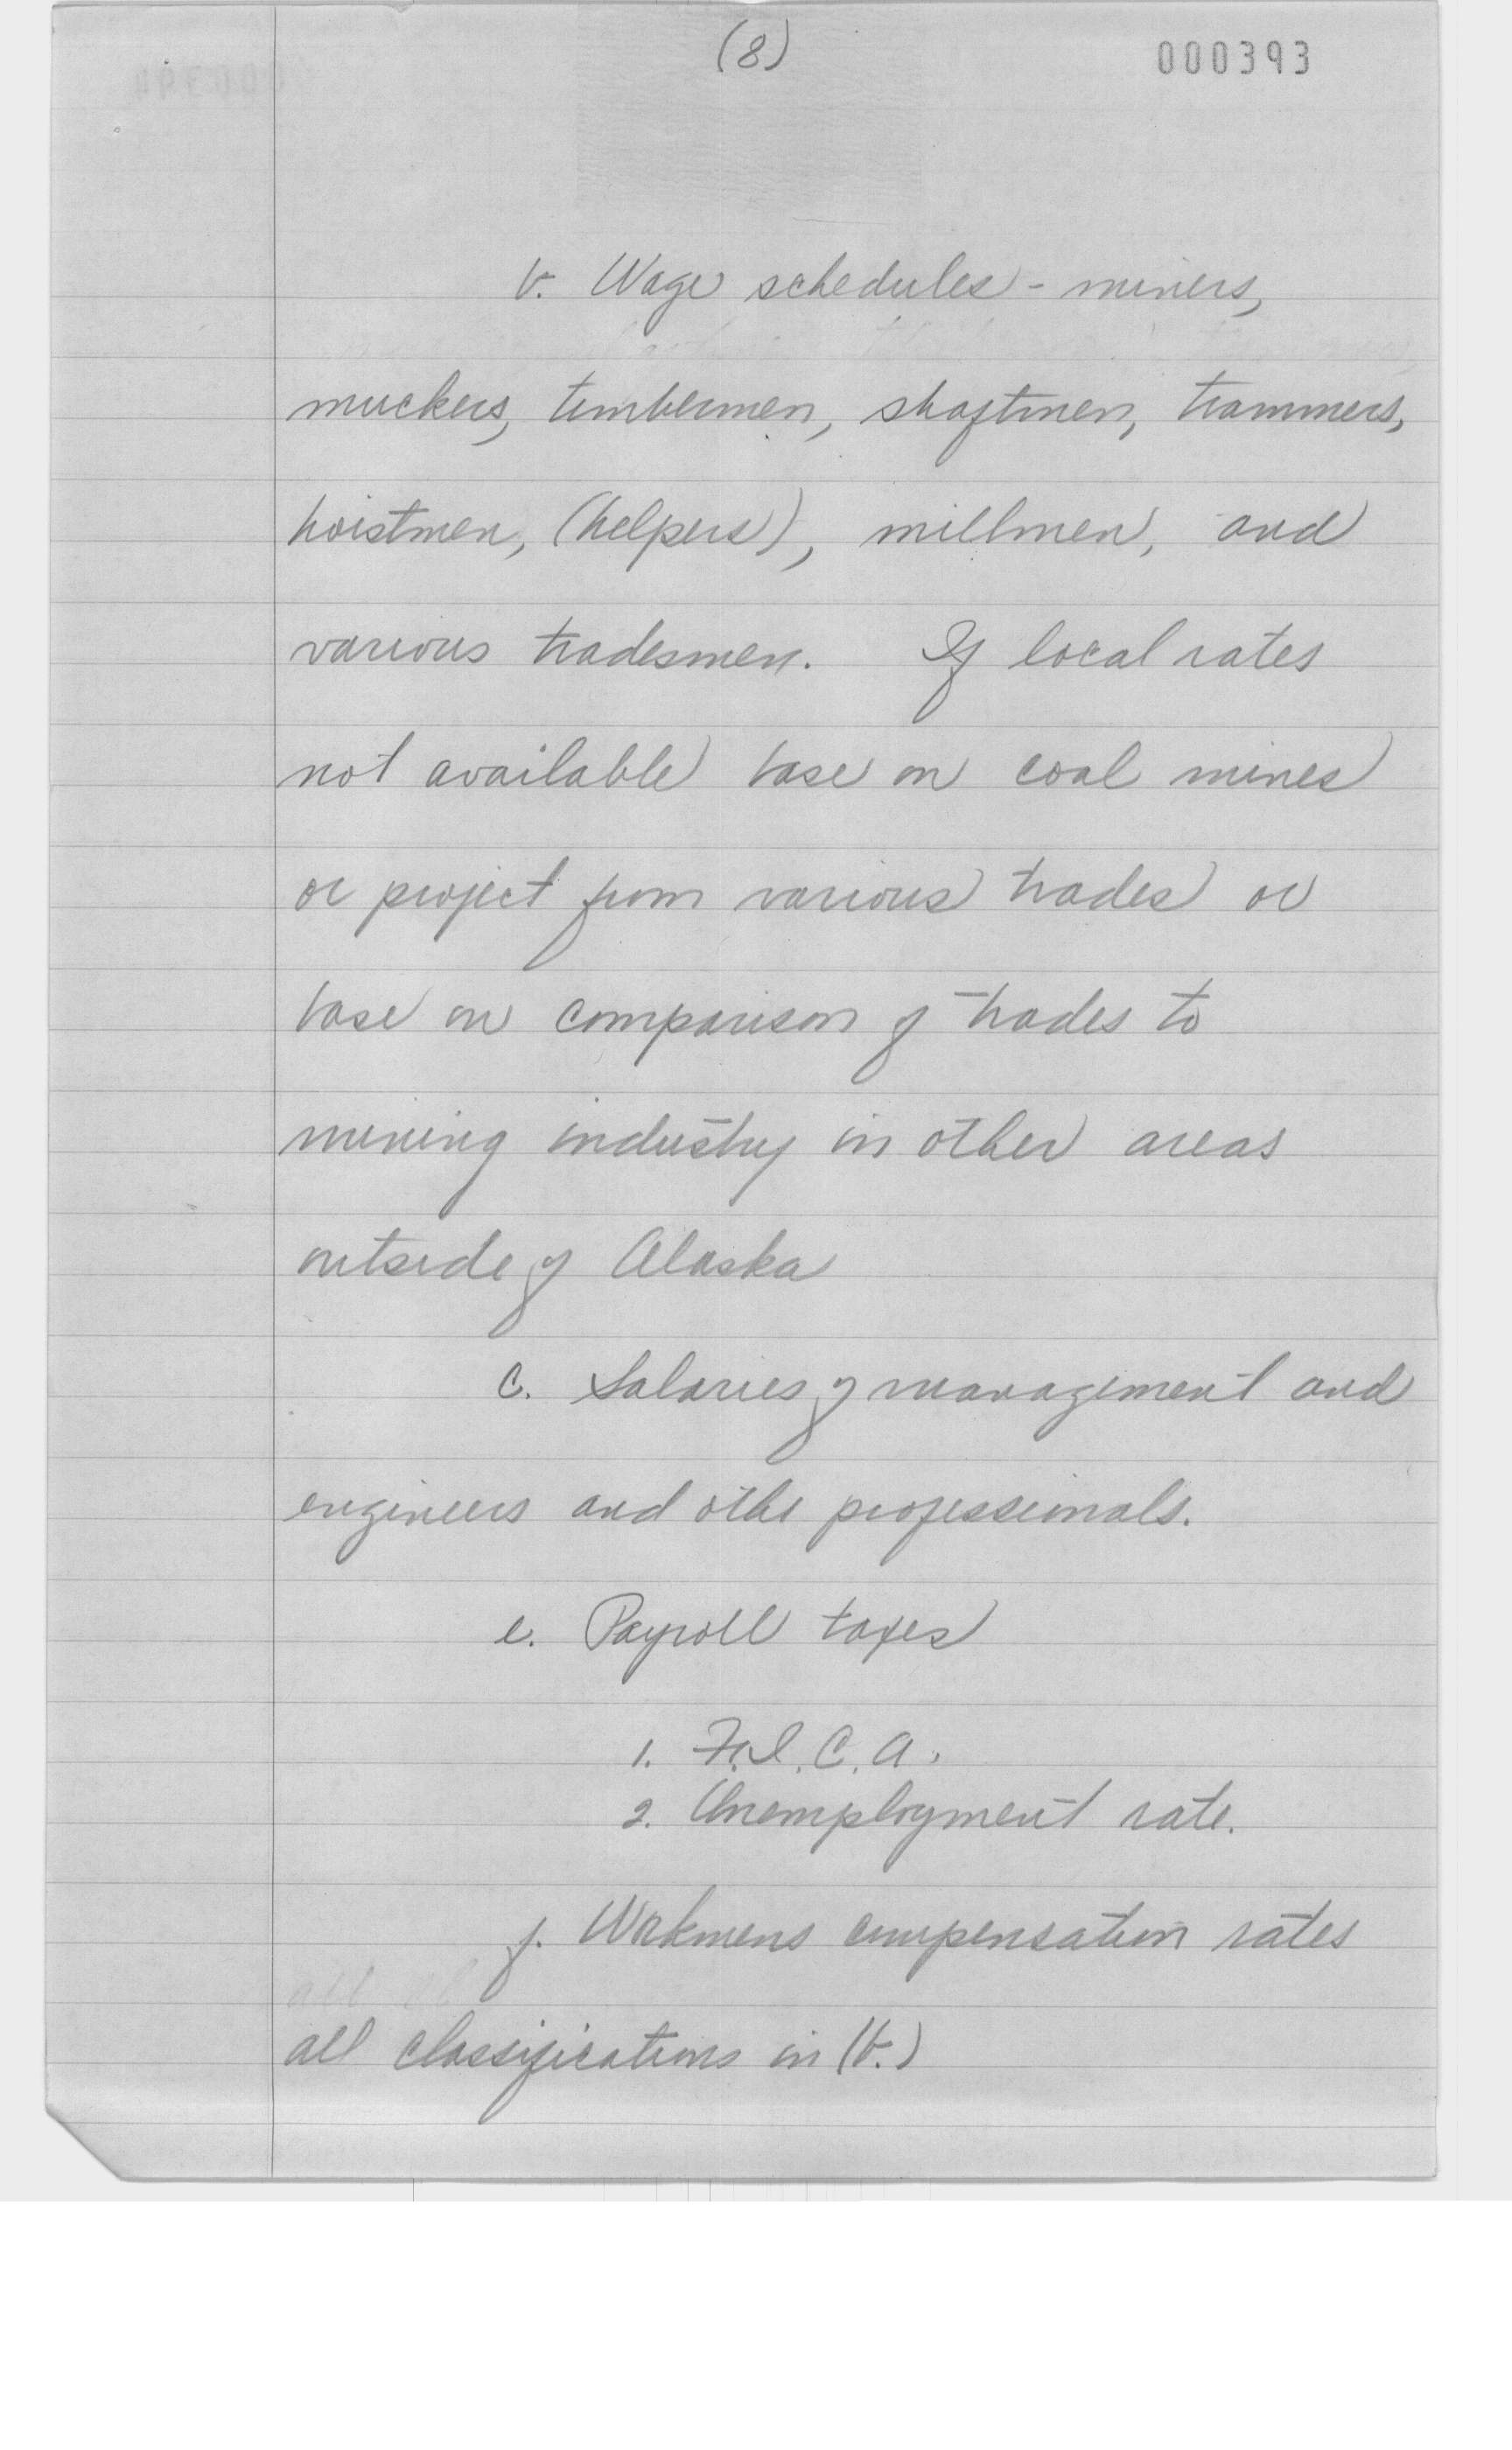 (8)
000393
b. Wage schedules - miners,
muckers, timbermen, shaftmen, trammers,
hoistmen, (helpers), millmen, and
various tradesmen. If local rates
not available base on coal mines
or project from various trades or
base on comparison of trades to
mining industry in other areas
outside of Alaska
c. Salaries of management and
engineers and othe professionals.
e. Payroll taxes
1. F.I.C.A.
2. Unemployment rate.
f. Workmens compensation rates
all classifications in (b.)